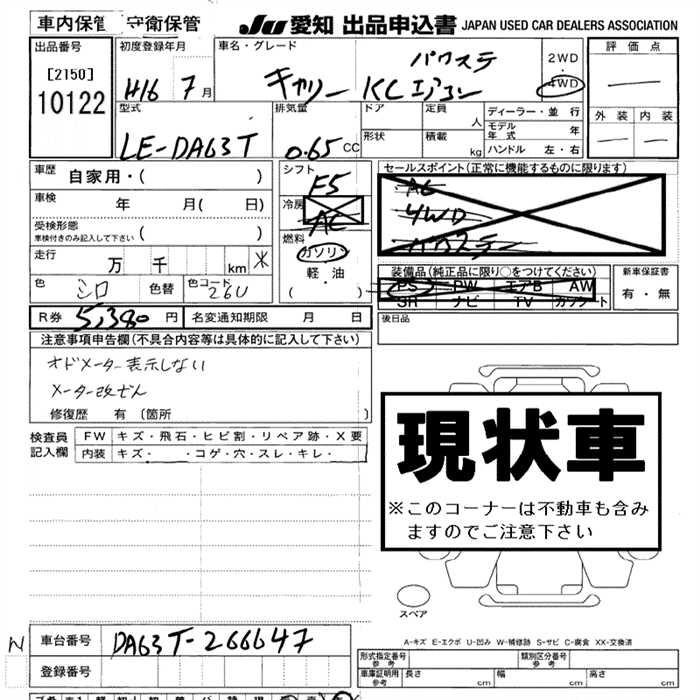 車内保管 守衛保管 JU 愛知 出品申込書 JAPAN USED CAR DEALERS ASSOCIATION
出品番号 初度登録年月 車名・グレード 2WD・4WD 評価点
[2150]
10122 H16 7月 キャリー KCエアコン パワステ
型式 排気量 ドア 定員 人 ディーラー・並行 外装 内装
LE-DA63T 0.65 CC 形状 積載 kg モデル年式 年
ハンドル 左・右
車歴 自家用・( ) シフト F5 セールスポイント(正常に機能するものに限ります)
車検 年 月( 日) 冷房 AC A6
4WD
パワステー
受検形態 ( )
車検付きのみ記入して下さい
燃料
ガソリン
軽・油
( )
走行 万 千 km *
色 シロ 色替 色コード 26U
装備品(純正品に限り○をつけてください) 新車保証書
PS PW エアB AW 有・無
SR ナビ TV カセット
R券 5,380円 名変通知期限 月 日 後日品
注意事項申告欄(不具合内容等は具体的に記入して下さい)
オドメーター表示しない
メーター改ざん
修復歴 有 (箇所 )
検査員記入欄 FW キズ・飛石・ヒビ割・リペア跡・X要
内装 キズ・ ・コゲ・穴・スレ・キレ・
現状車
※このコーナーは不動車も含み
ますのでご注意下さい
スペア
A-キズ E-エクボ U-凹み W-補修跡 S-サビ C-腐食 XX-交換済
N 車台番号 DA63T-266647
登録番号
形式指定番号 参考 類別区分番号 参考
車庫証明用 参考 長さ cm 幅 cm 高さ cm